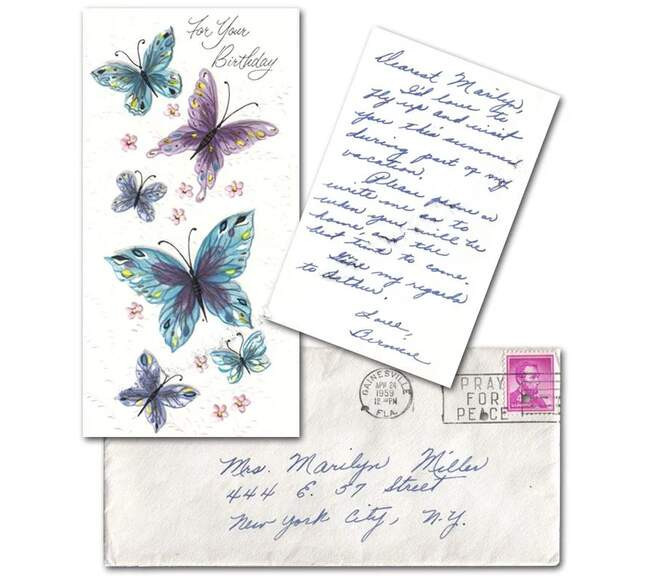 For Your
Birthday
Dearest Marilyn,
I'd love to
fly up and visit
you this summer
during part of my
vacation.
Please phone or
write me as to
when you will be
home and the
best time to come.
Give my regards
to Arthur.
Love,
Berniece
GAINESVILLE
APR 24
1959
12-PM
FLA.
PRAY
FOR
PEACE
Mrs. Marilyn Miller
444 E. 57 Street
New York City, N.Y.